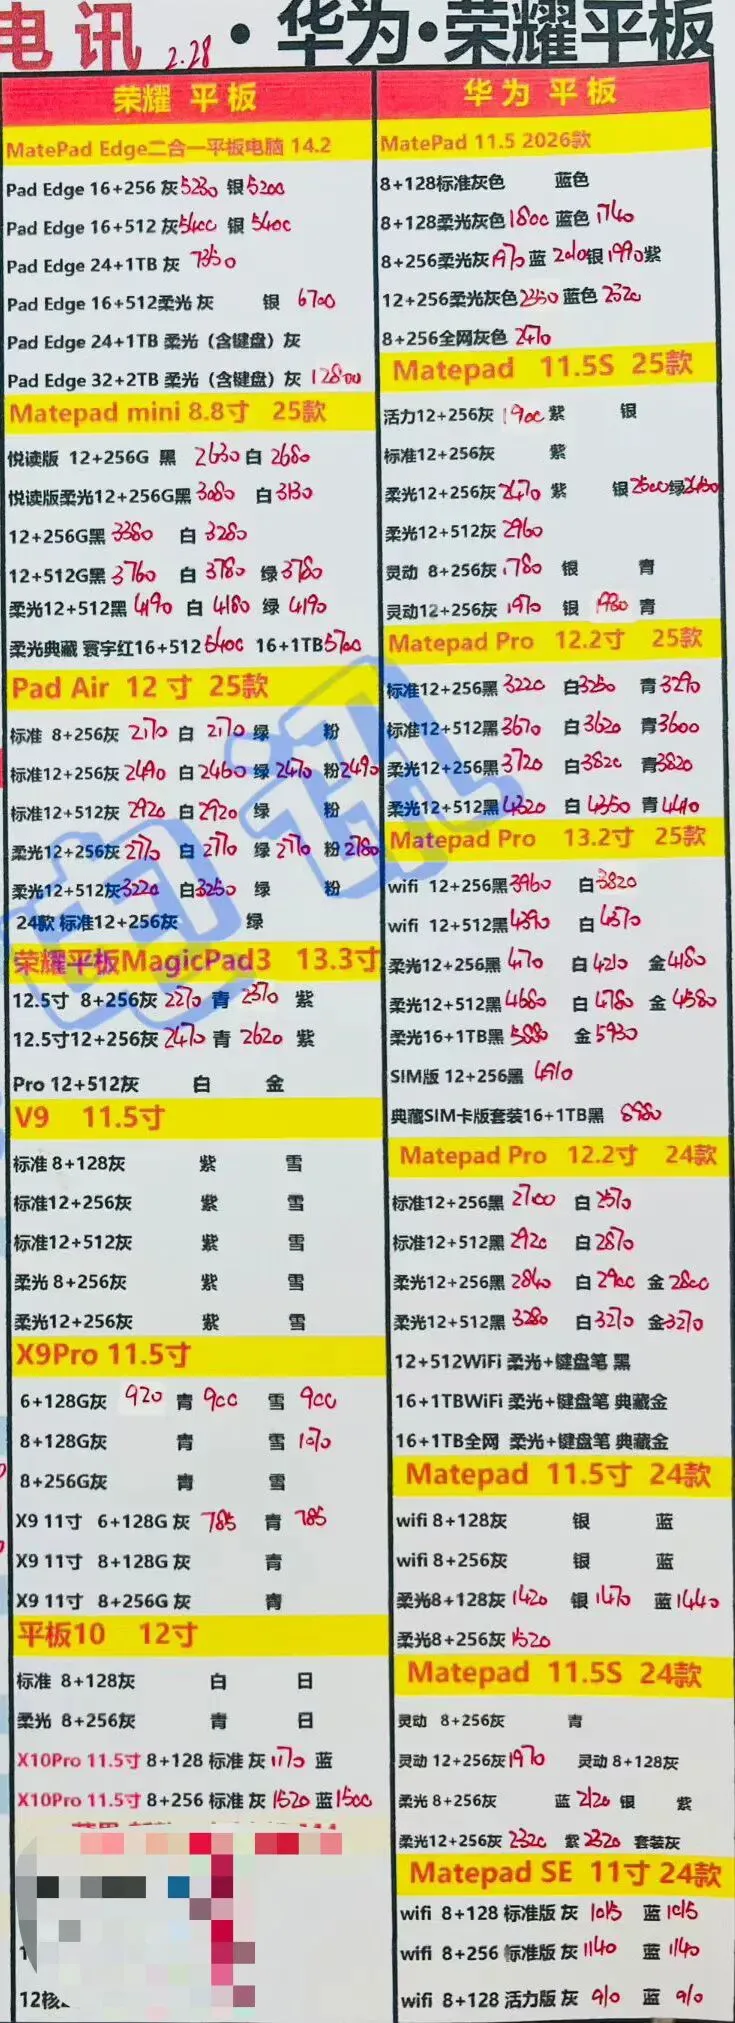 电讯 2.28 ·华为·荣耀平板
荣耀 平板
MatePad Edge二合一平板电脑 14.2
Pad Edge 16+256 灰5230 银5200
Pad Edge 16+512 灰5400 银 5400
Pad Edge 24+1TB 灰 7350
Pad Edge 16+512柔光 灰 银 6700
Pad Edge 24+1TB 柔光（含键盘）灰
Pad Edge 32+2TB 柔光（含键盘）灰 12800
Matepad mini 8.8寸 25款
悦读版 12+256G 黑 2630 白 2680
悦读版柔光12+256G黑 3080 白 3130
12+256G黑 3380 白 3280
12+512G黑 3760 白 3780 绿 3780
柔光12+512黑 4190 白 4180 绿 4190
柔光典藏 寰宇红16+512 5400 16+1TB 5700
Pad Air 12寸 25款
标准 8+256灰 2170 白 2170 绿 粉
标准12+256灰 2490 白 2460 绿 2470 粉 2490
标准12+512灰 2920 白 2920 绿 粉
柔光12+256灰 2770 白 2770 绿 2770 粉 2780
柔光12+512灰 3220 白 3250 绿 粉
24款 标准12+256灰 绿
荣耀平板MagicPad3 13.3寸
12.5寸 8+256灰 2270 青 2370 紫
12.5寸12+256灰 2470 青 2620 紫
Pro 12+512灰 白 金
V9 11.5寸
标准 8+128灰 紫 雪
标准12+256灰 紫 雪
标准12+512灰 紫 雪
柔光 8+256灰 紫 雪
柔光12+256灰 紫 雪
X9Pro 11.5寸
6+128G灰 920 青 900 雪 900
8+128G灰 青 雪 1070
8+256G灰 青 雪
X9 11寸 6+128G 灰 785 青 785
X9 11寸 8+128G 灰 青
X9 11寸 8+256G 灰 青
平板10 12寸
标准 8+128灰 白 日
柔光 8+256灰 青 日
X10Pro 11.5寸 8+128 标准 灰 1170 蓝
X10Pro 11.5寸 8+256 标准 灰 1520 蓝 1500
12核
华为 平板
MatePad 11.5 2026款
8+128标准灰色 蓝色
8+128柔光灰色 1800 蓝色 1740
8+256柔光灰 1970 蓝 2010 银 1990 紫
12+256柔光灰色 2350 蓝色 2320
8+256全网灰色 2470
Matepad 11.5S 25款
活力12+256灰 1900 紫 银
标准12+256灰 紫
柔光12+256灰 2470 紫 银 2500 绿
柔光12+512灰 2960
灵动 8+256灰 1780 银 青
灵动12+256灰 1970 银 1980 青
Matepad Pro 12.2寸 25款
标准12+256黑 3220 白 3250 青 3290
标准12+512黑 3670 白 3620 青 3600
柔光12+256黑 3720 白 3820 青 3820
柔光12+512黑 4320 白 4350 青 4410
Matepad Pro 13.2寸 25款
wifi 12+256黑 3960 白 3820
wifi 12+512黑 4390 白 4370
柔光12+256黑 4170 白 4210 金 4180
柔光12+512黑 4680 白 4780 金 4580
柔光16+1TB黑 5880 金 5930
SIM版 12+256黑 4910
典藏SIM卡版套装16+1TB黑 8980
Matepad Pro 12.2寸 24款
标准12+256黑 2700 白 2570
标准12+512黑 2920 白 2870
柔光12+256黑 2840 白 2900 金 2800
柔光12+512黑 3280 白 3270 金 3270
12+512WiFi 柔光+键盘笔 黑
16+1TBWiFi 柔光+键盘笔 典藏金
16+1TB全网 柔光+键盘笔 典藏金
Matepad 11.5寸 24款
wifi 8+128灰 银 蓝
wifi 8+256灰 银 蓝
柔光8+128灰 1420 银 1470 蓝 1440
柔光8+256灰 1520
Matepad 11.5S 24款
灵动 8+256灰 青
灵动 12+256灰 1970 灵动 8+128灰
柔光 8+256灰 蓝 2120 银 紫
柔光12+256灰 2320 紫 2320 套装灰
Matepad SE 11寸 24款
wifi 8+128 标准版 灰 1015 蓝 1015
wifi 8+256 标准版 灰 1140 蓝 1140
wifi 8+128 活力版 灰 910 蓝 910
电讯